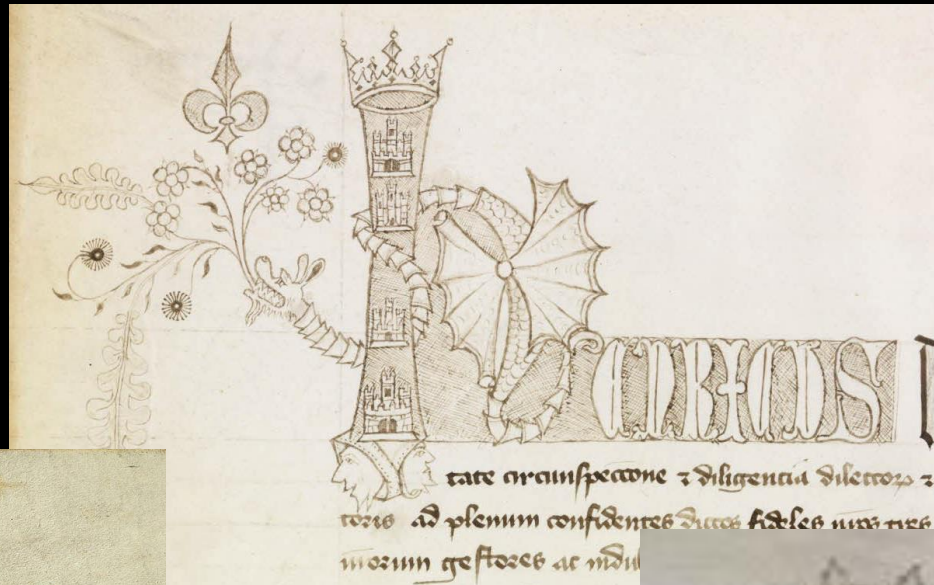 Henricus D
tate circumspeccione ⁊ diligencia dilectoꝝ ⁊
toris ad plenum confidentes dictos fideles nros
gestores ac